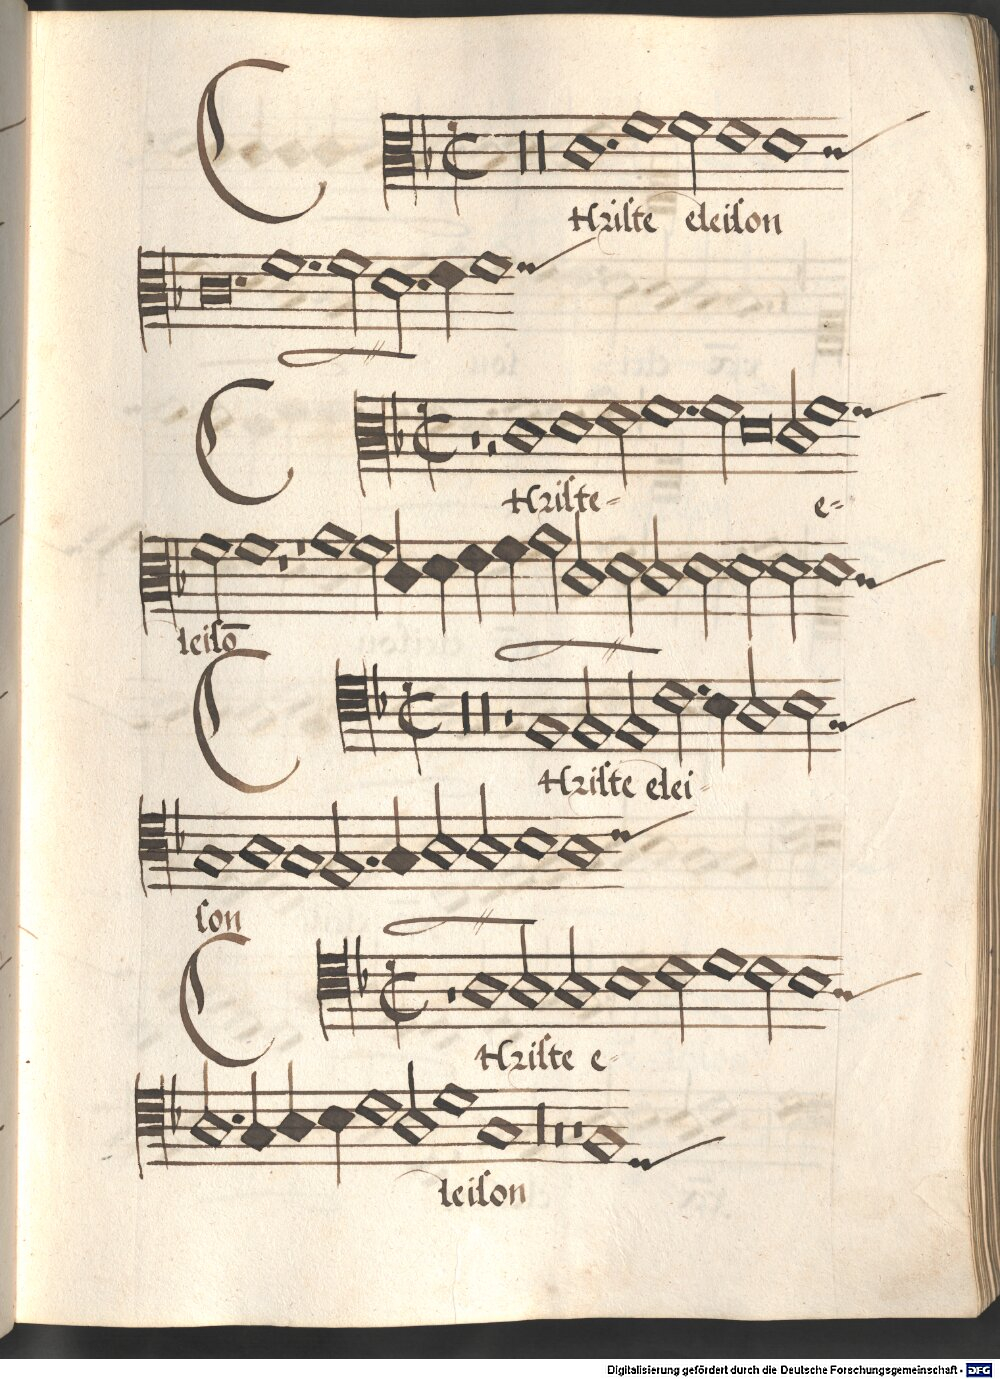 CHriste eleison
CHriste= e=
leisō
CHriste elei=
son
CHriste e=
leison
Digitalisierung gefördert durch die Deutsche Forschungsgemeinschaft - DFG